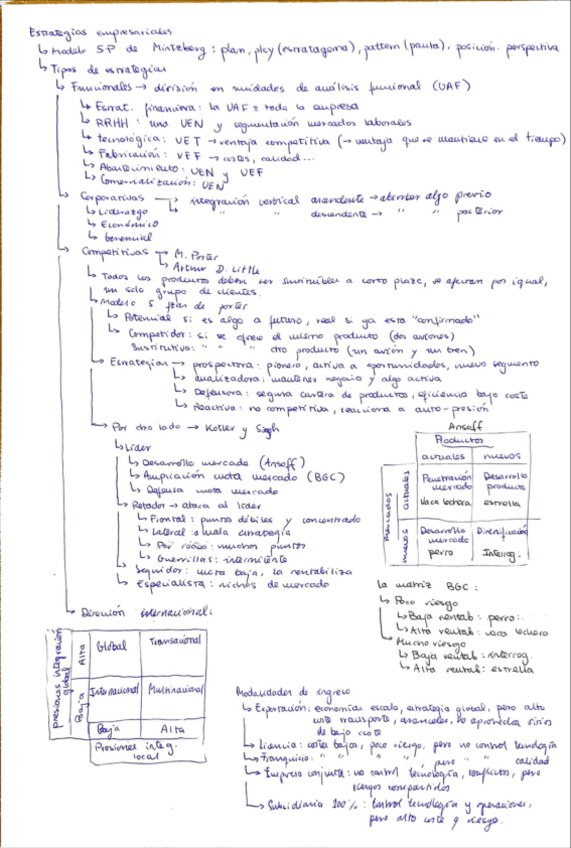 Estrategias empresariales
↳ Modelo 5P de Mintzberg: plan, ploy (estratagema), pattern (pauta), posición. perspectiva
↳ Tipos de estrategias
↳ Funcionales → división en unidades de análisis funcional (UAF)
↳ Estrat. financiera: la UAF = toda la empresa
↳ RRHH: una UEN y segmentación mercados laborales
↳ tecnológica: VET → ventaja competitiva (→ ventaja que se mantiene en el tiempo)
↳ Fabricación: VEF → costes, calidad...
↳ Abastecimiento: UEN y VEF
↳ Comercialización: UEN
↳ Corporativas → integración vertical ascendente → absorber algo previo
↳ Liderazgo ↳ " " descendente → " " posterior
↳ Económico
↳ Gerencial
↳ Competitivas → M. Porter
↳ Arthur D. Little
↳ Todos los productos deben ser sustituibles a corto plazo, se afectan por igual,
un solo grupo de clientes.
↳ Modelo 5 fzas de porter
↳ Potencial si es algo a futuro, real si ya esta "confirmado"
↳ Competidor: si se ofrece el mismo producto (dos aviones)
Sustitutivo: " " " otro producto (un avión y un tren)
↳ Estrategias → prospectora: pionero, activa a oportunidades, nuevo segmento
↳ analizadora: mantener negocio y algo activa
↳ Defensora: segura cartera de productos, eficiencia bajo coste
↳ Reactiva: no competitiva, reacciona a auto-presión
↳ Por otro lado → Kotler y Singh
↳ Líder
↳ Desarrollo mercado (Ansoff)
↳ Ampliación cuota mercado (BGC)
↳ Defensa cuota mercado
↳ Retador → ataca al líder
↳ Frontal: puntos débiles y concentrado
↳ Lateral: o mala estrategia
↳ Por rodeo: muchos puntos
↳ Guerrillas: intermitente
↳ Seguidor: cuota baja, la rentabiliza
↳ Especialista: nichos de mercado
Ansoff
Productos
actuales nuevos
mercados
actuales
Penetración mercado
Vaca lechera
Desarrollo producto
estrella
nuevos
Desarrollo mercado
perro
Diversificación
Interrog.
La matriz BGC:
↳ Poco riesgo
↳ Baja rentab: perro.
↳ Alta rentab: vaca lechera
↳ Mucho riesgo
↳ Baja rentab: interrog.
↳ Alta rental: estrella
↳ Dirección internacional:
presiones integración global
Alta
Global Transnacional
Baja
Internacional Multinacional
Baja Alta
Presiones integ. local
Modalidades de ingreso
↳ Exportación: economías escala, estrategia global, pero alto
coste transporte, aranceles, no aprovecha sitios
de bajo coste
↳ Licencia: costes bajos, poco riesgo, pero no control tecnología
↳ Franquicia: " " " ", pero " " calidad
↳ Empresa conjunta: no control tecnología, conflictos, pero
riesgos compartidos
↳ Subsidiaria 100%: Control tecnología y operaciones,
pero alto coste y riesgo.